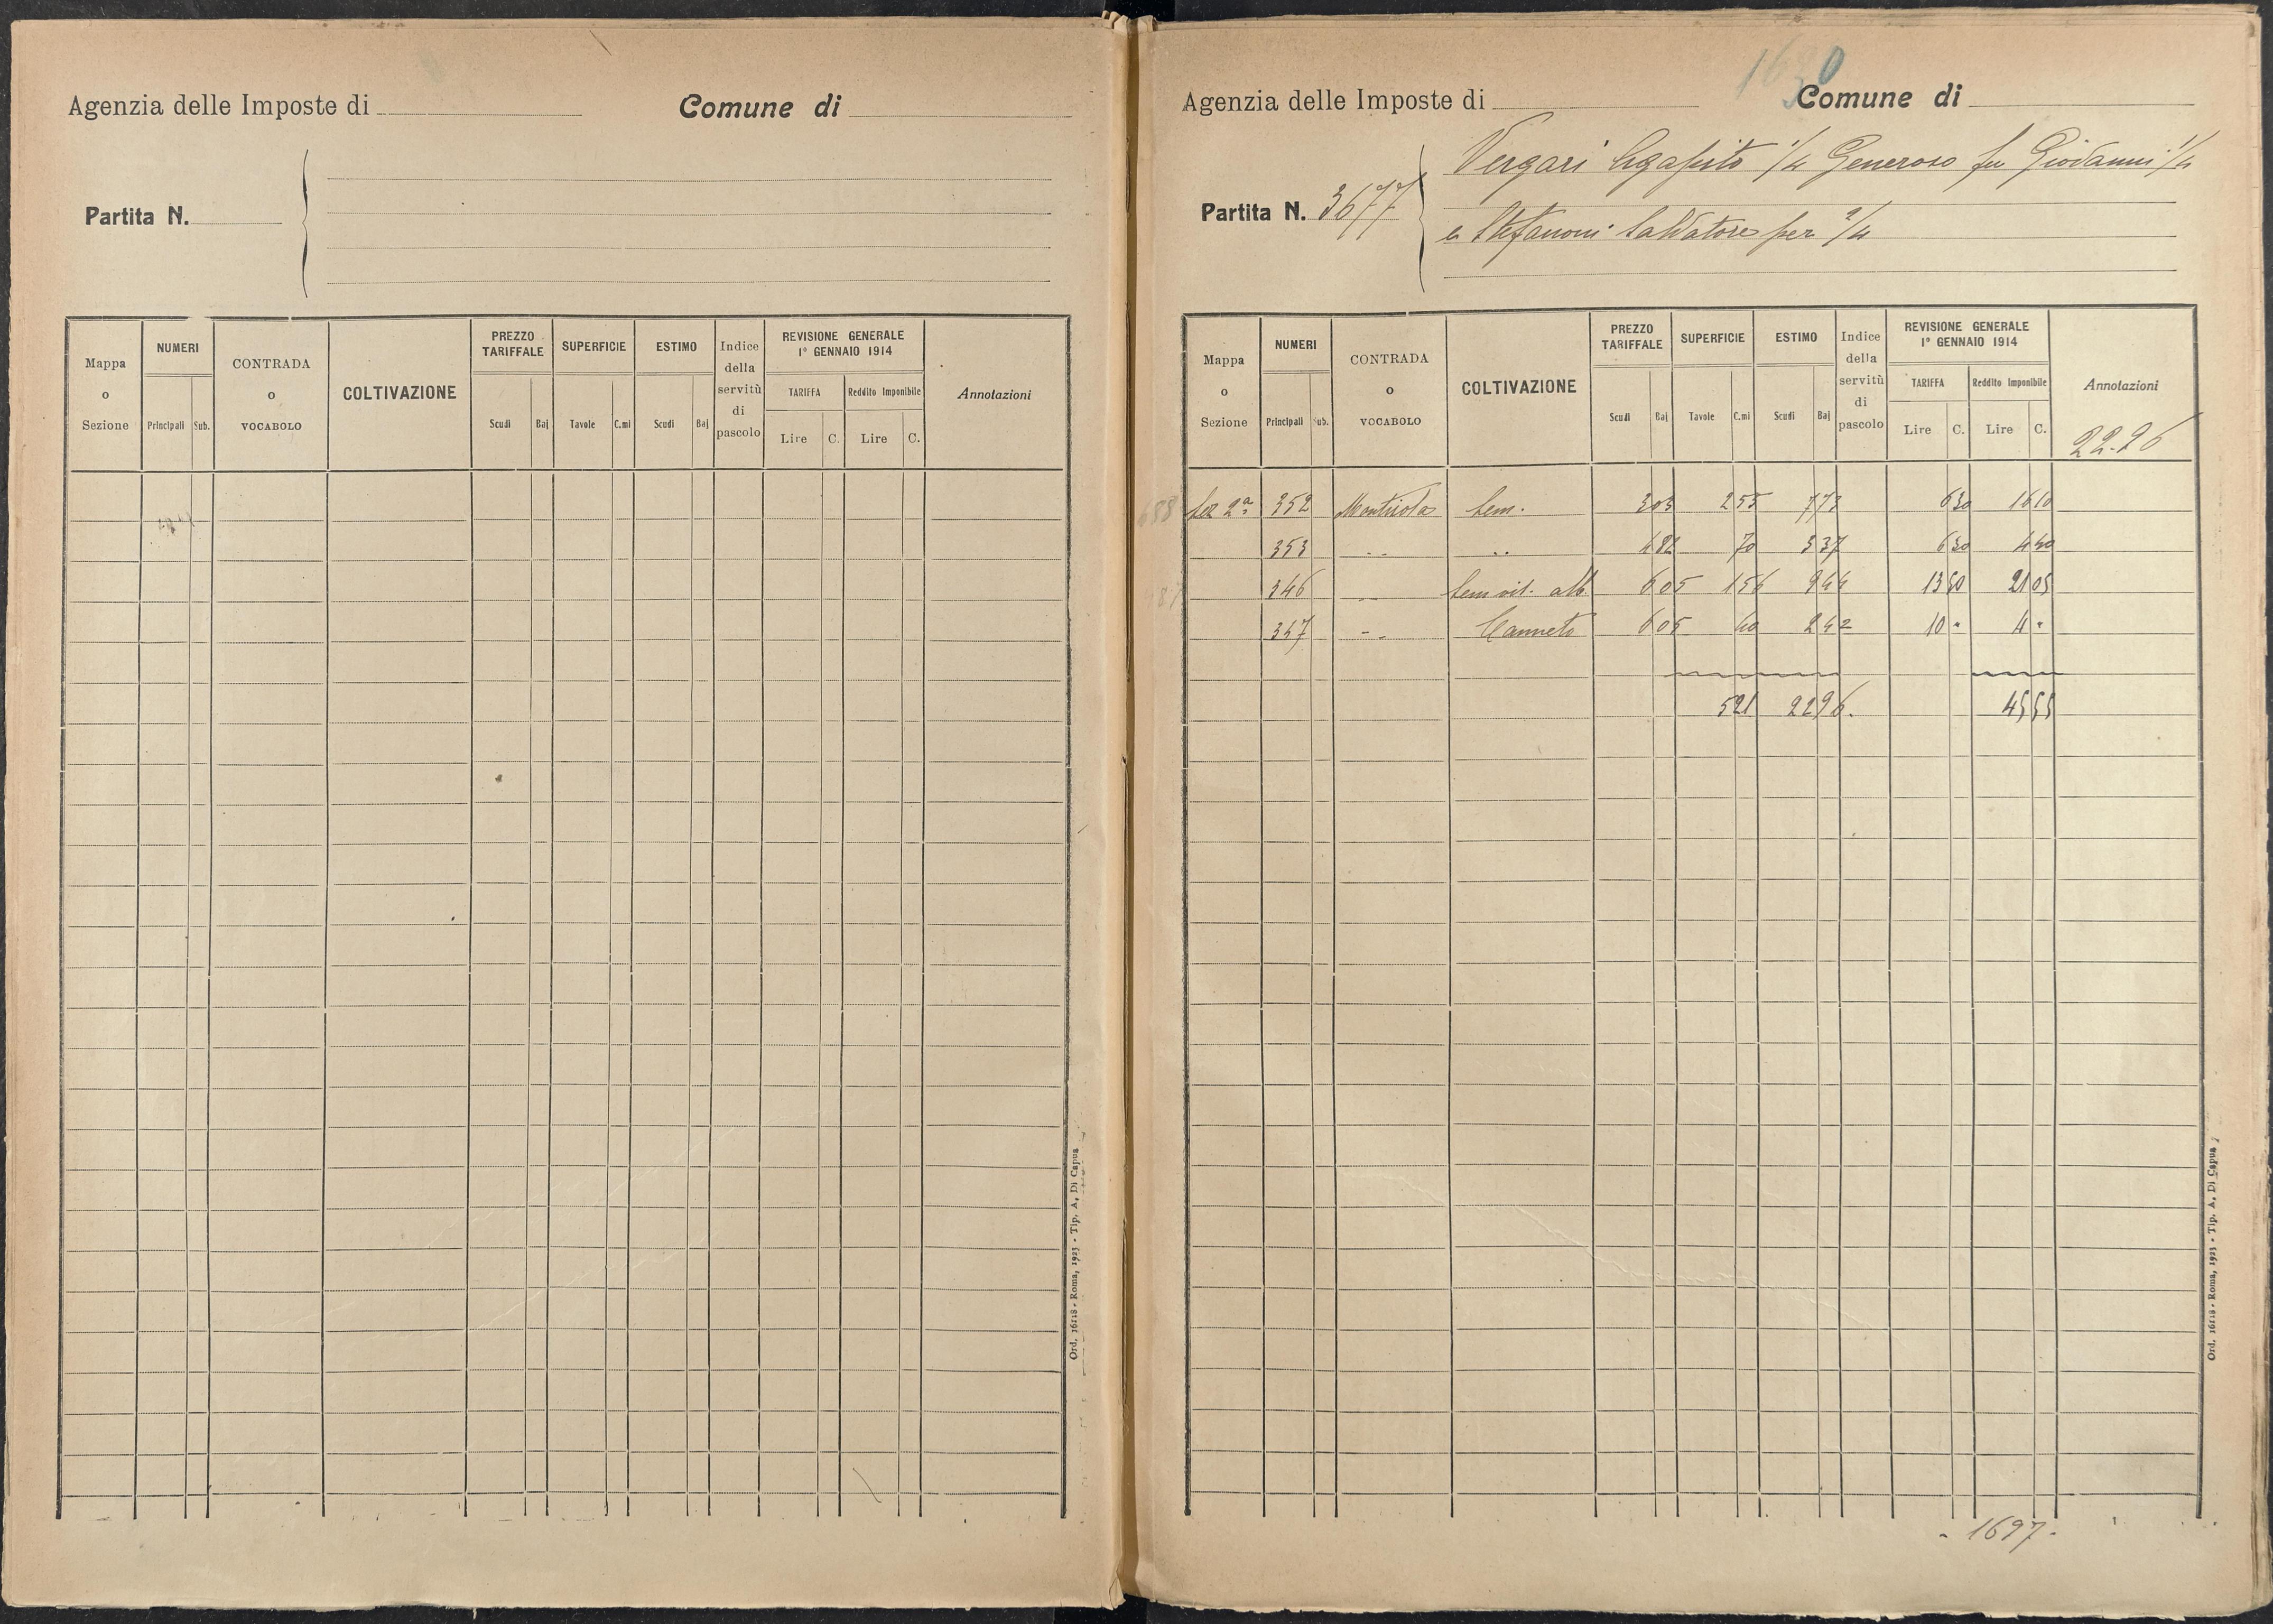 Agenzia delle Imposte di
Comune di
Partita N.
Mappa o Sezione
NUMERI
Principali Sub.
CONTRADA o VOCABOLO
COLTIVAZIONE
PREZZO TARIFFALE
Scudi Baj
SUPERFICIE
Tavole C.mi
ESTIMO
Scudi Baj
Indice della servitù di pascolo
REVISIONE GENERALE
1° GENNAIO 1914
TARIFFA Reddito Imponibile
Lire C. Lire C.
Annotazioni
Ord. 16118 - Roma, 1923 - Tip. A. Di Capua
Agenzia delle Imposte di
Comune di
Vergari Agapito 1/4 Generoso fu Giovanni 1/4
Partita N. 3677
e Stefanoni Salvatore per 2/4
Mappa o Sezione
NUMERI
Principali Sub.
CONTRADA o VOCABOLO
COLTIVAZIONE
PREZZO TARIFFALE
Scudi Baj
SUPERFICIE
Tavole C.mi
ESTIMO
Scudi Baj
Indice della servitù di pascolo
REVISIONE GENERALE
1° GENNAIO 1914
TARIFFA Reddito Imponibile
Lire C. Lire C.
Annotazioni
22.96
Sez 2a 352 Sem. 303 255 773 6 30 16 10
353 .. .. 482 70 337 6 30 4 40
346 .. Sem vit. alb. 605 156 944 13 50 21 05
347 .. Canneto 605 40 242 10 " 4 "
521 2296. 45 55
Ord. 16118 - Roma, 1923 - Tip. A. Di Capua
- 1697 -